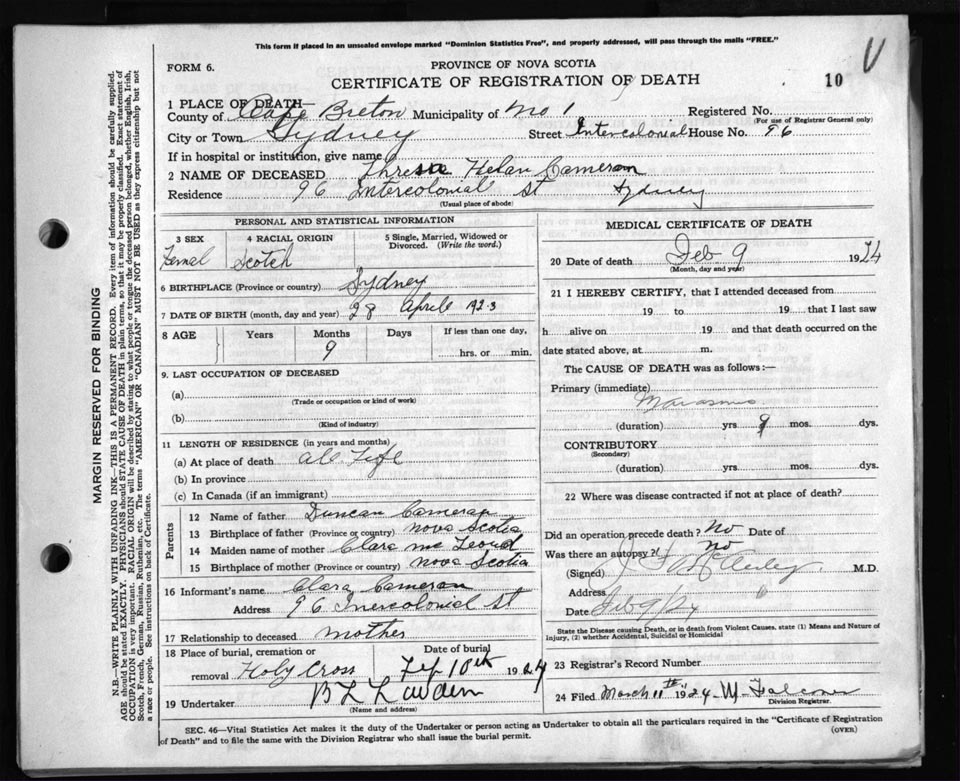 This form if placed in an unsealed envelope marked "Dominion Statistics Free", and properly addressed, will pass through the mails "FREE."
FORM 6.
PROVINCE OF NOVA SCOTIA
CERTIFICATE OF REGISTRATION OF DEATH
10
V
1 PLACE OF DEATH—
County of Cape Breton Municipality of No 1 Registered No.
(For use of Registrar General only)
City or Town Sydney Street Intercolonial House No. 96
If in hospital or institution, give name
2 NAME OF DECEASED Thresa Helan Cameron
Residence 96 Intercolonial St Sydney
(Usual place of abode)
PERSONAL AND STATISTICAL INFORMATION
3 SEX
Femal
4 RACIAL ORIGIN
Scotch
5 Single, Married, Widowed or Divorced. (Write the word.)
6 BIRTHPLACE (Province or country) Sydney
7 DATE OF BIRTH (month, day and year) 28 April 1923
8 AGE Years Months Days If less than one day,
9 hrs. or min.
9. LAST OCCUPATION OF DECEASED
(a)
(Trade or occupation or kind of work)
(b)
(Kind of industry)
11 LENGTH OF RESIDENCE (in years and months)
(a) At place of death all Life
(b) In province
(c) In Canada (if an immigrant)
Parents
12 Name of father Duncan Cameron
13 Birthplace of father (Province or country) Nova Scotia
14 Maiden name of mother Clara Mc Leod
15 Birthplace of mother (Province or country) Nova Scotia
16 Informant's name Clara Cameran
Address 96 Inercolonial St
17 Relationship to deceased mother
18 Place of burial, cremation or removal Holy Cross
Date of burial
10th 1924
19 Undertaker B L
(Name and address)
MEDICAL CERTIFICATE OF DEATH
20 Date of death Feb 9 1924
(Month, day and year)
21 I HEREBY CERTIFY, that I attended deceased from
19 to 19 that I last saw
h alive on 19 and that death occurred on the
date stated above, at m.
The CAUSE OF DEATH was as follows:—
Primary (immediate)
Marasmus
(duration) yrs. 9 mos. dys.
CONTRIBUTORY
(Secondary)
(duration) yrs. mos. dys.
22 Where was disease contracted if not at place of death?
Did an operation precede death? No Date of
Was there an autopsy? no
(Signed) M.D.
Address
Date Feb 9/24
State the Disease causing Death, or in death from Violent Causes, state (1) Means and Nature of
Injury, (2) whether Accidental, Suicidal or Homicidal
23 Registrar's Record Number
24 Filed March 11th 1924
Division Registrar.
SEC. 46—Vital Statistics Act makes it the duty of the Undertaker or person acting as Undertaker to obtain all the particulars required in the "Certificate of Registration
of Death" and to file the same with the Division Registrar who shall issue the burial permit.
(OVER)
MARGIN RESERVED FOR BINDING
N.B.—WRITE PLAINLY WITH UNFADING INK—THIS IS A PERMANENT RECORD. Every item of information should be carefully supplied.
AGE should be stated EXACTLY. PHYSICIANS should STATE CAUSE OF DEATH in plain terms, so that it may be properly classified. Exact statement of
OCCUPATION is very important. RACIAL ORIGIN will be described by stating to what people or tongue the deceased person belonged, whether English, Irish,
Scotch, French, German, Russian, Ruthenian, etc. The terms "AMERICAN" OR "CANADIAN" MUST NOT BE USED as they express citizenship but not
a race or people. See instructions on back of Certificate.